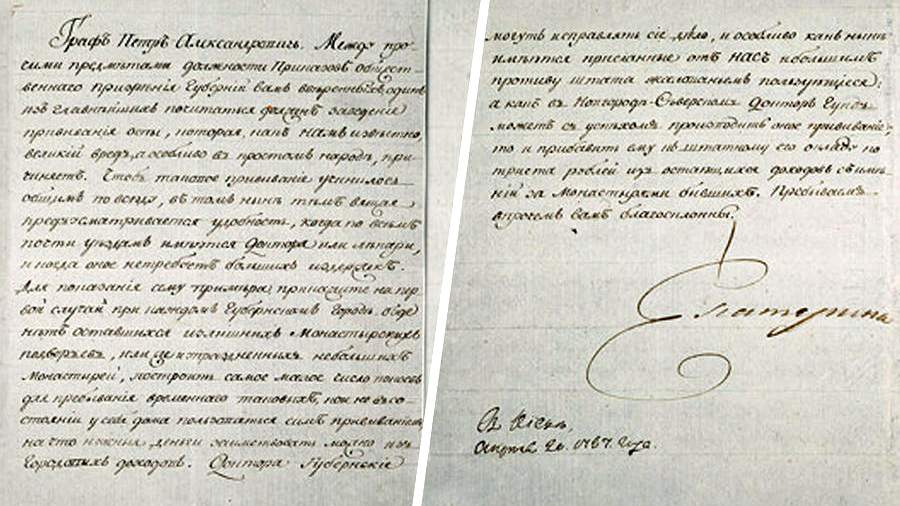 Графъ Петръ Александровичъ. Между про-
чими предметами должности Приказовъ общест-
веннаго призрѣнія Губерній вамъ ввѣренныхъ, одинъ
изъ главнѣйшихъ почитаться долженъ заведеніе
прививанія оспы, которая, какъ намъ извѣстно,
великій вредъ, а особливо въ простомъ народѣ, при-
чиняетъ. Чтобъ таковое прививаніе учинилось
общимъ повсюду, въ томъ нынѣ тѣмъ вящая
предъусматривается удобность, когда по всѣмъ
почти уѣздамъ имѣются Доктора или лѣкари,
и когда оное нетребуетъ большихъ издержекъ.
Для показанія сему примѣра; прикажите на пер-
вой случай при каждомъ Губернскомъ Городѣ, въ одномъ
изъ оставшихся излишнихъ Монастырскихъ
подворьевъ, или же изъ упраздненныхъ небольшихъ
Монастырей, построить самое малое число покоевъ
для пребыванія временнаго таковыхъ, кои не въ со-
стояніи у себя дома пользоваться симъ прививаніемъ;
на что нужныя деньги заимствовать можно изъ
Городскихъ доходовъ. Доктора Губернскіе
могутъ исправлять сіе дѣло, и особливо какъ нынѣ
имѣются присланные отъ НАСЪ небольшимъ
противу штата жалованьемъ пользующіеся;
а какъ въ Новгородъ-Сѣверскомъ Докторъ Гунъ
можетъ съ успѣхомъ производить оное прививаніе,
то и прибавить ему къ штатному его окладу по
триста рублей изъ остающихся доходовъ съ имѣ-
ній за Монастырями бывшихъ. Пребываемъ
впрочемъ вамъ благосклонны.
Екатерина
Въ Кіевѣ,
Апрѣля 20. 1787. года.